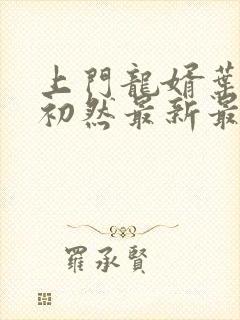 上門龍婿葉
初然最新最
羅承賢